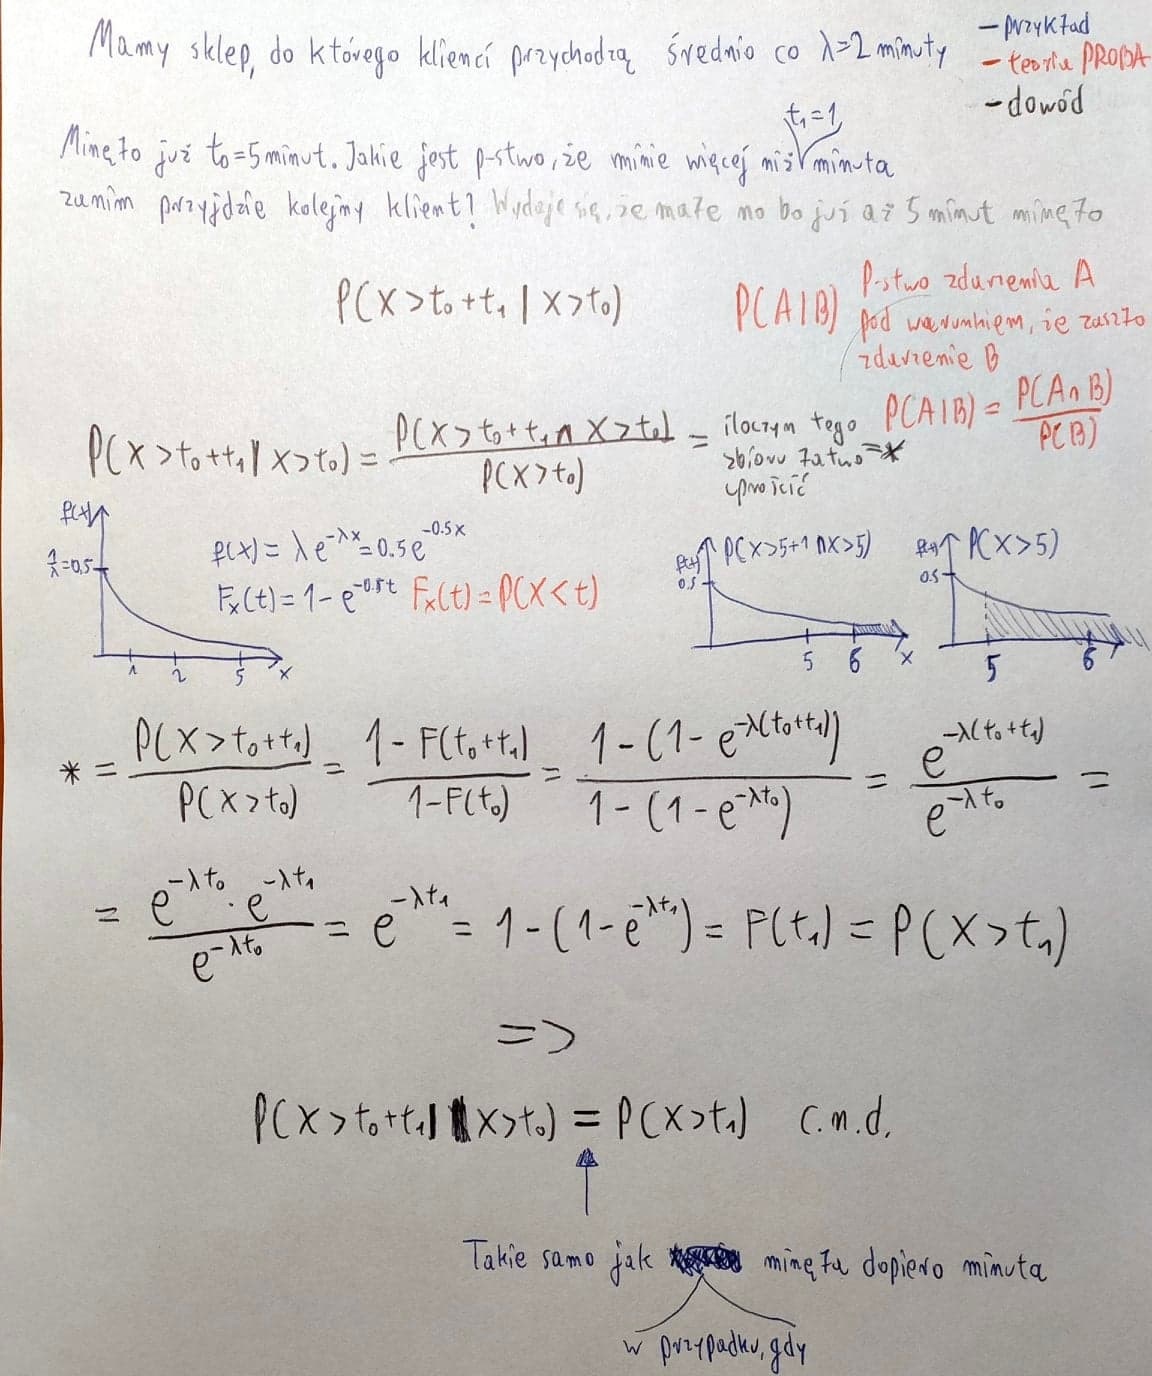 Mamy sklep, do którego klienci przychodzą średnio co λ=2 minuty
- przykład
- teoria PROBA
- dowód
t₁=1
Minęło już t₀=5 minut. Jakie jest p-stwo, że minie więcej niż minuta
zanim przyjdzie kolejny klient? Wydaje się, że małe no bo już aż 5 minut minęło
P(X>t₀+t₁ | X>t₀)
P(A|B) P-stwo zdarzenia A
pod warunkiem, że zaszło
zdarzenie B
P(A|B) = P(A∩B) / P(B)
P(X>t₀+t₁ | X>t₀) = P(X>t₀+t₁ ∩ X>t₀) / P(X>t₀) = iloczyn tego
zbioru łatwo = *
uprościć
f(x)
1/λ=0,5
1 2 5 x
f(x) = λe^(-λx) = 0.5e^(-0.5x)
Fₓ(t) = 1 - e^(-0.5t) Fₓ(t) = P(X<t)
f(x) P(X>5+1 ∩ X>5)
0.5
5 6 x
f(x) P(X>5)
0.5
5 6
* = P(X>t₀+t₁) / P(X>t₀) = 1-F(t₀+t₁) / 1-F(t₀) = 1-(1-e^(-λ(t₀+t₁))) / 1-(1-e^(-λt₀)) = e^(-λ(t₀+t₁)) / e^(-λt₀) =
= e^(-λt₀) · e^(-λt₁) / e^(-λt₀) = e^(-λt₁) = 1-(1-e^(-λt₁)) = F(t₁) = P(X>t₁)
=>
P(X>t₀+t₁ | X>t₀) = P(X>t₁) c.n.d.
Takie samo jak minęła dopiero minuta
w przypadku, gdy